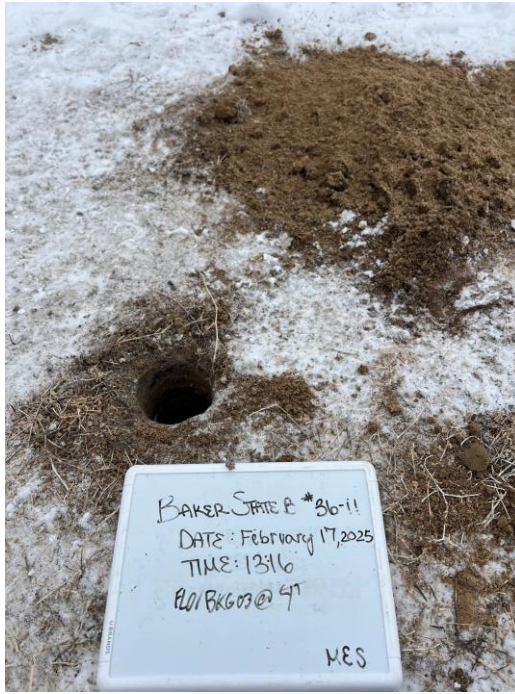 BAKER STATE B #36-11
DATE: February 17, 2025
TIME: 13:16
FL01/BKG03@ 4'
MES
U BRANDS